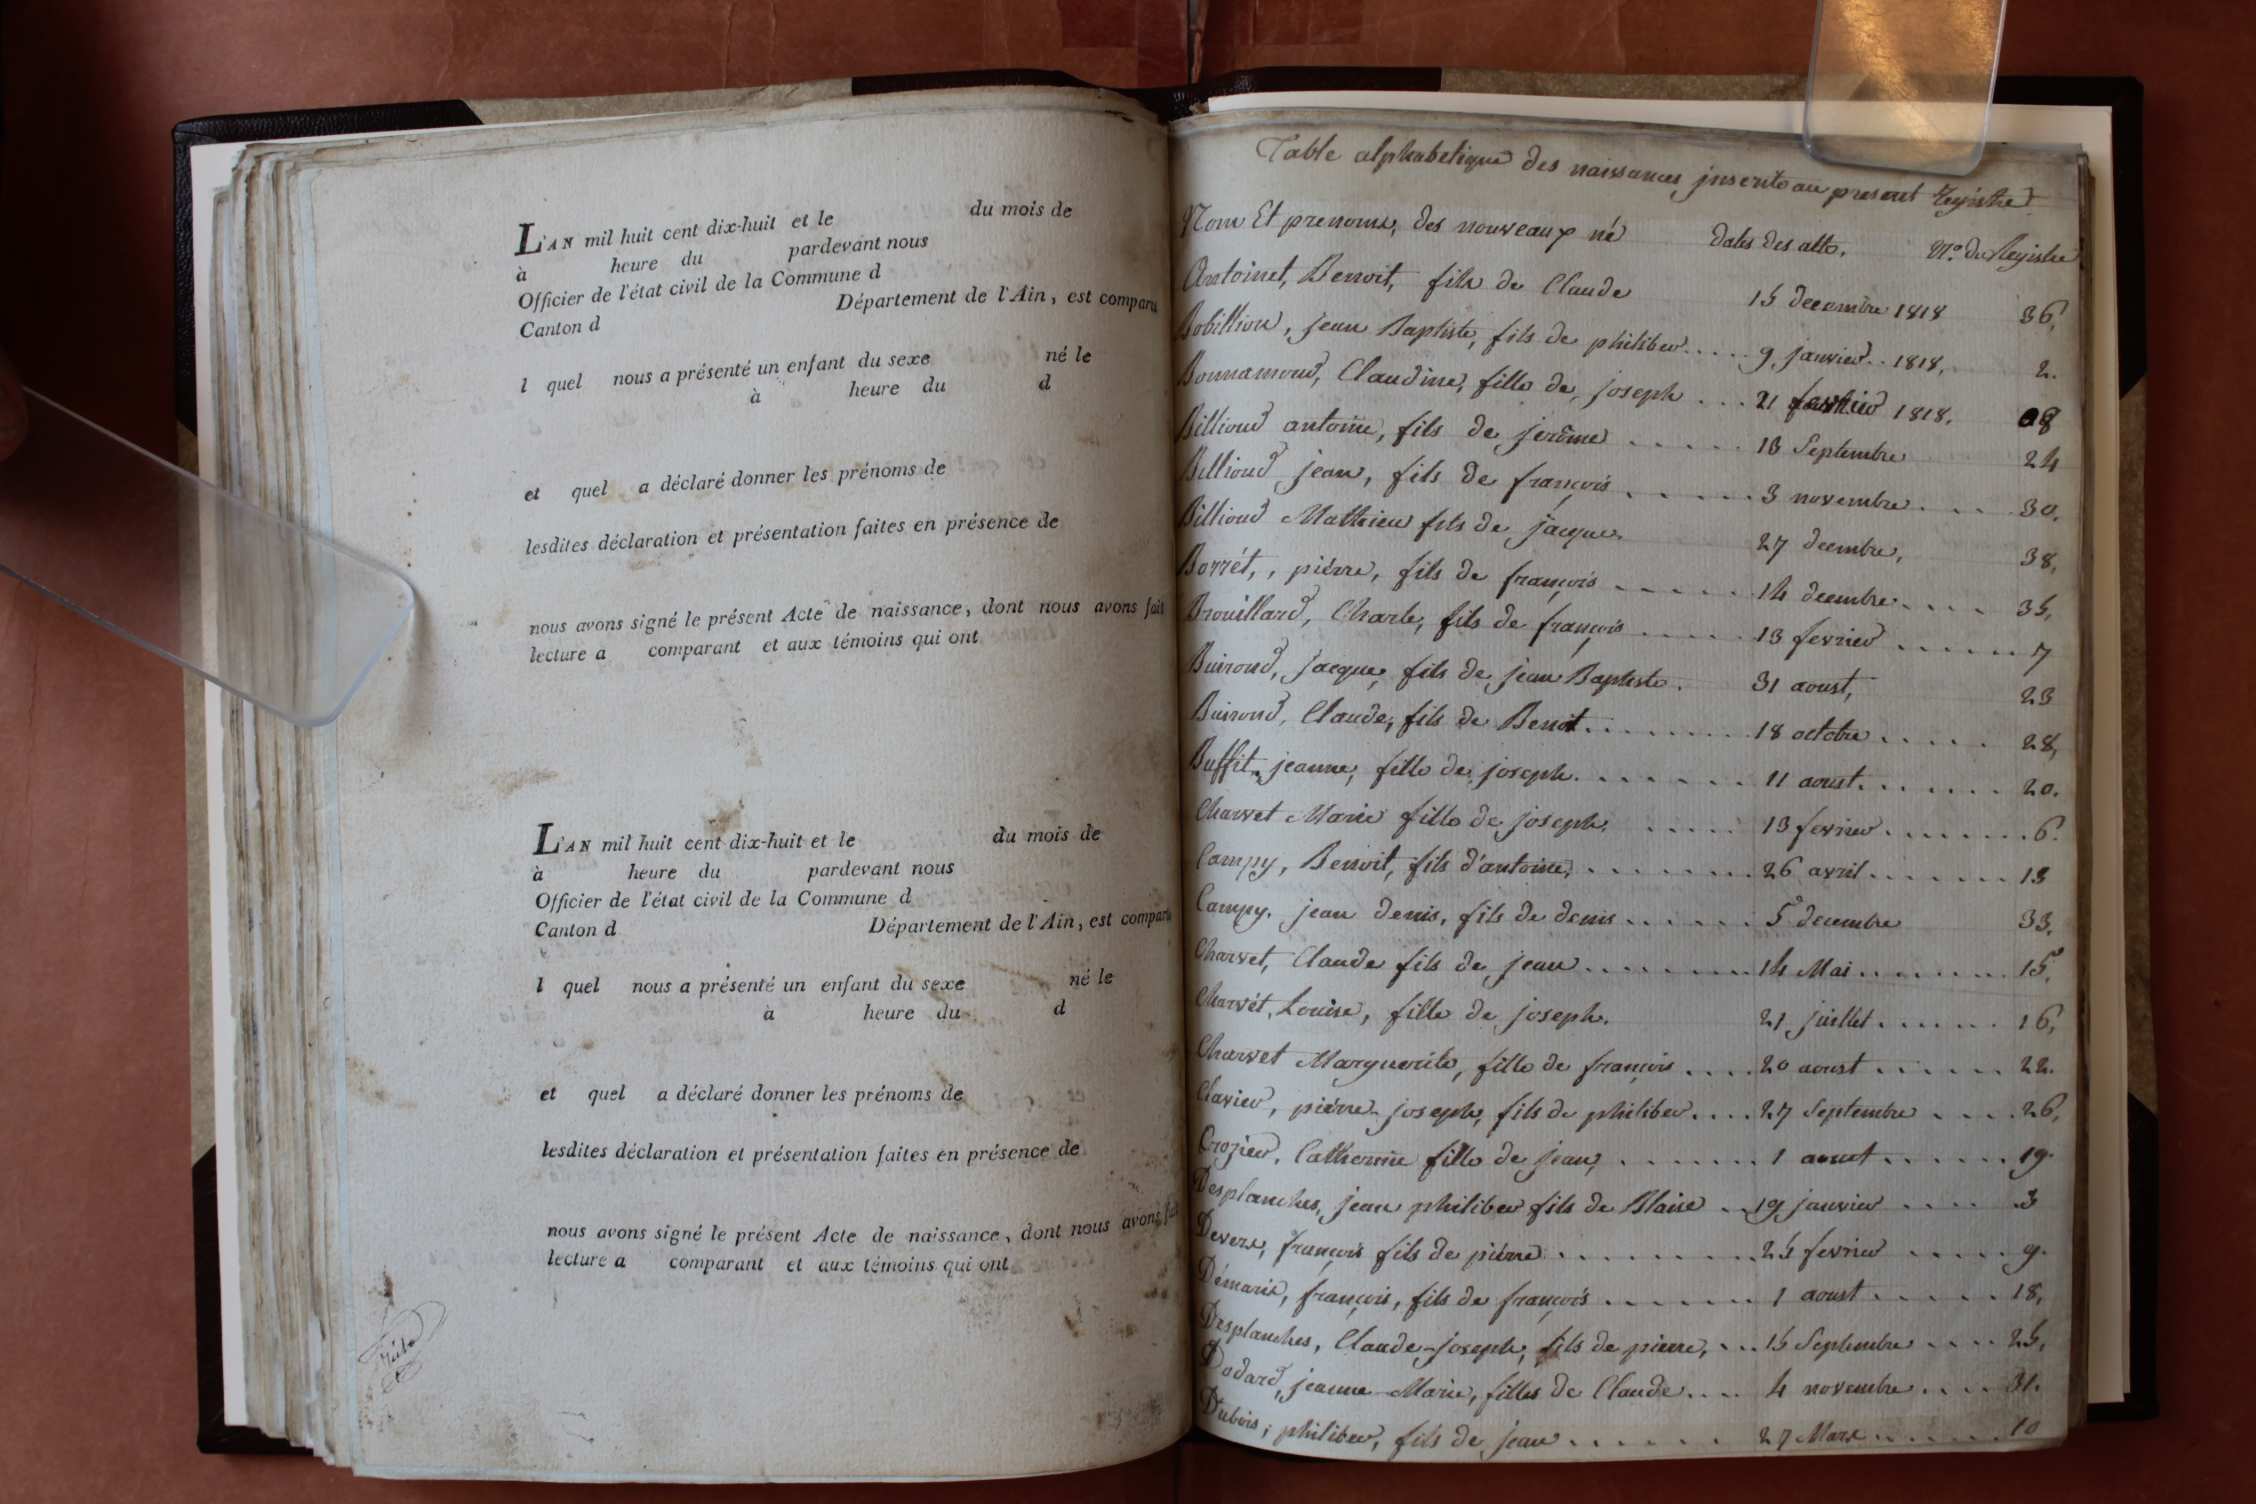 L'AN mil huit cent dix-huit et le du mois de
à heure du pardevant nous
Officier de l'état civil de la Commune d
Canton d Département de l'Ain, est comparu
l quel nous a présenté un enfant du sexe né le
à heure du d
et quel a déclaré donner les prénoms de
lesdites déclaration et présentation faites en présence de
nous avons signé le présent Acte de naissance, dont nous avons fait
lecture a comparant et aux témoins qui ont
L'AN mil huit cent dix-huit et le du mois de
à heure du pardevant nous
Officier de l'état civil de la Commune d
Canton d Département de l'Ain, est comparu
l quel nous a présenté un enfant du sexe né le
à heure du d
et quel a déclaré donner les prénoms de
lesdites déclaration et présentation faites en présence de
nous avons signé le présent Acte de naissance, dont nous avons fait
lecture a comparant et aux témoins qui ont
Table alphabetique des naissances jnscrite au present Registre
Nom Et prenoms, des nouveaux né dates des atto. N.o du Registre
Antoinet, Benoit, fils de Claude 15 decembre 1818 36,
Bobillion, jean Baptiste, fils de philiber..... 9, janvier.. 1818, 2.
Bonnamour, Claudine, fille de, joseph ... 21 fevrier 1818, 8
Billioud antoine, fils de jerôme ..... 13 Septembre 24
Billioud jean, fils de françois ...... 3 novembre..... 30,
Billioud Mathieu fils de jacque, 27 decembre, 38,
Borrét,, piérre, fils de françois ...... 14 decembre.... 35,
Brouillard, Charle, fils de françois ..... 13 fevrier ...... 7
Buiroud, jacque, fils de jean Baptiste. 31 aoust, 23
Buiroud, Claude, fils de Benoit........ 18 octobre ..... 28,
Buffit, jeanne, fille de joseph. ....... 11 aoust....... 20.
Charvet Marie fille de joseph, ..... 13 fevrier....... 6.
Campy, Benoit, fils d'antoine, ........ 26 avril....... 13
Campy, jean denis, fils de denis...... 5 decembre 33,
Charvet, Claude fils de jean........ 14 Mai....... 15,
Charvét, Louise, fille de joseph, 21 juillet...... 16,
Charvet Marguerite, fille de françois .... 20 aoust ...... 22.
Clavier, piérre joseph, fils de philiber.... 27 Septembre .... 26,
Crozier, Catherine fille de jean, ....... 1 aoust...... 19.
Desplanches, jean philiber fils de Blaise .. 19 janvier .... 3
Devers, françois fils de piérre .......... 25 fevrier ..... 9.
Démaris, françois, fils de françois ....... 1 aoust ...... 18,
Desplanches, Claude-joseph, fils de pierre, ... 15 Septembre .... 25,
Dodard, jeanne Marie, filles de Claude.... 4 novembre .... 31.
Dubois, philiber, fils de, jean ....... 27 Mars...... 10